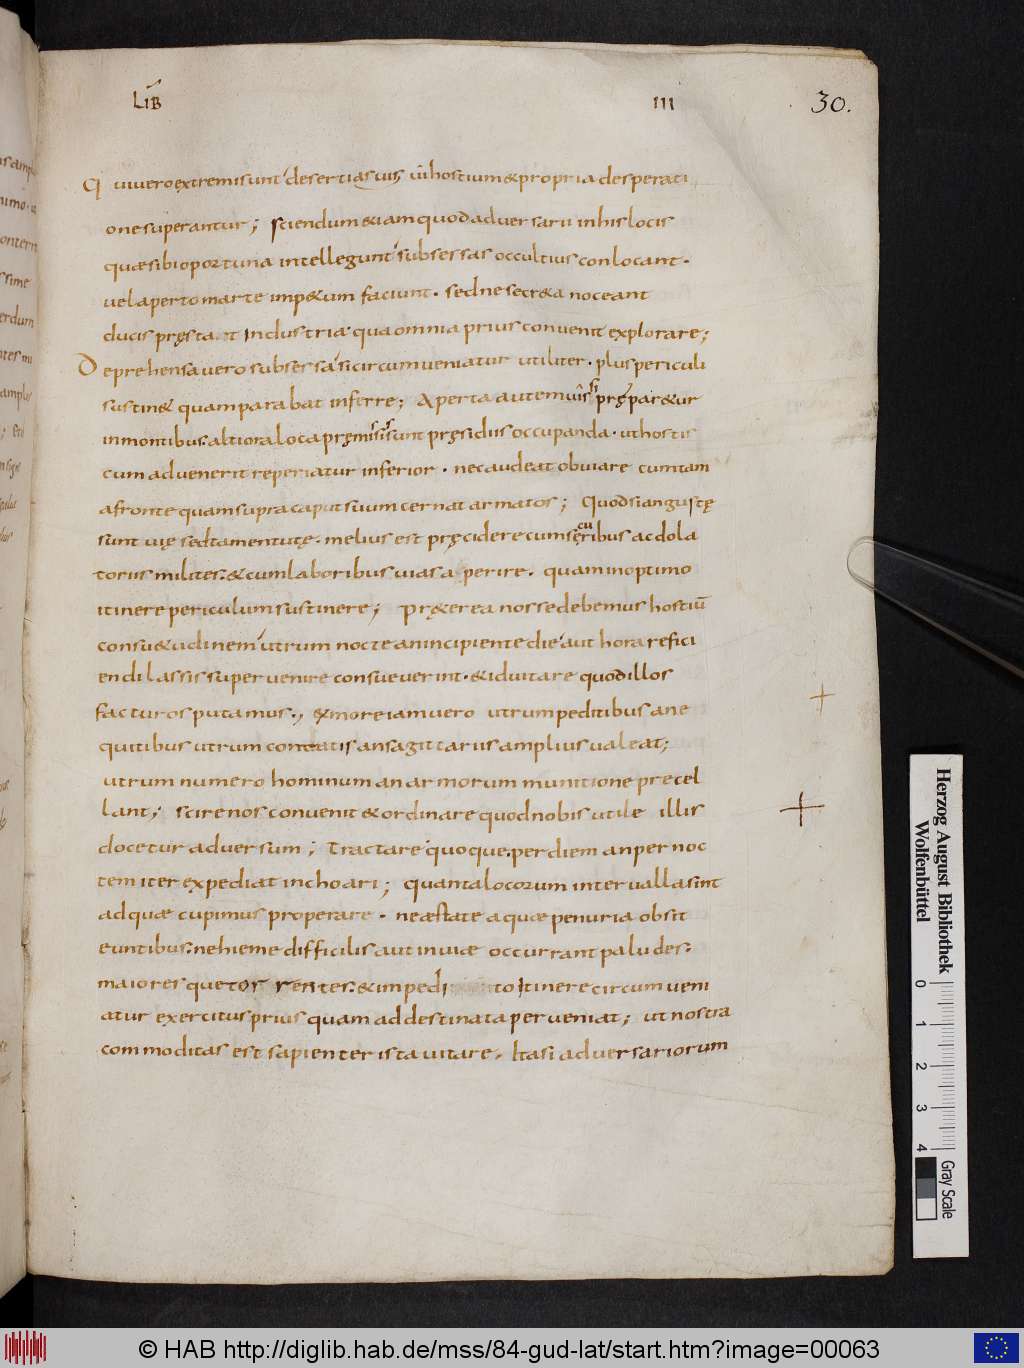 LIB III 30.
Qui vivero extremi sunt desertias vis, vi hostium & propria desperati
one superantur; sciendum etiam quod adversarii in his locis
quae sibi oportuna intellegunt subsessas occultius conlocant.
vel aperto marte imp&um faciunt. sed ne secr&a noceant
ducis pręstat industria qua omnia prius convenit explorare;
Deprehensa vero subsessa si circumveniatur utiliter. plus periculi
sustin& quam parabat inferre; Aperta autem vis si prępar&ur
in montibus. altiora loca pręmissis sunt pręsidiis occupanda. ut hostis
cum advenerit reperiatur inferior. nec audeat obviare cum tam
a fronte quam supra caput suum cernat armatos; Quod si angustę
sunt vię sed tamen tutę. melius est pręcidere cum sęcuribus ac dola
toriis milites. & cum labor ibus vias aperire. quam in optimo
itinere periculum sustinere; Pr&erea nosse debemus hostiū
consu&udinem utrum nocte an incipiente die aut hora refici
endi lassis supervenire consueverint. & id vitare quod illos
facturos putamus., & more iam vero utrum peditibus an e
quitibus utrum contatis an sagittariis amplius valeat;
utrum numero hominum an armorum munitione precel
lant; scire nos convenit & ordinare quod nobis utile illis
docetur adversum; Tractare quoque. per diem an per noc
tem iter expediat inchoari; quanta locorum intervalla sint
ad quae cupimus properare. ne aestate aquae penuria obsit
euntibus. ne hieme difficilis aut inviae occurrant paludes.
maioresque torrentes. & impedito Itinere circumveni
atur exercitus prius quam ad destinata perveniat; ut nostra
commoditas est sapienter ista vitare. Ita si adversariorum
Herzog August Bibliothek
Wolfenbüttel
0 1 2 3 4
Gray Scale
© HAB http://diglib.hab.de/mss/84-gud-lat/start.htm?image=00063